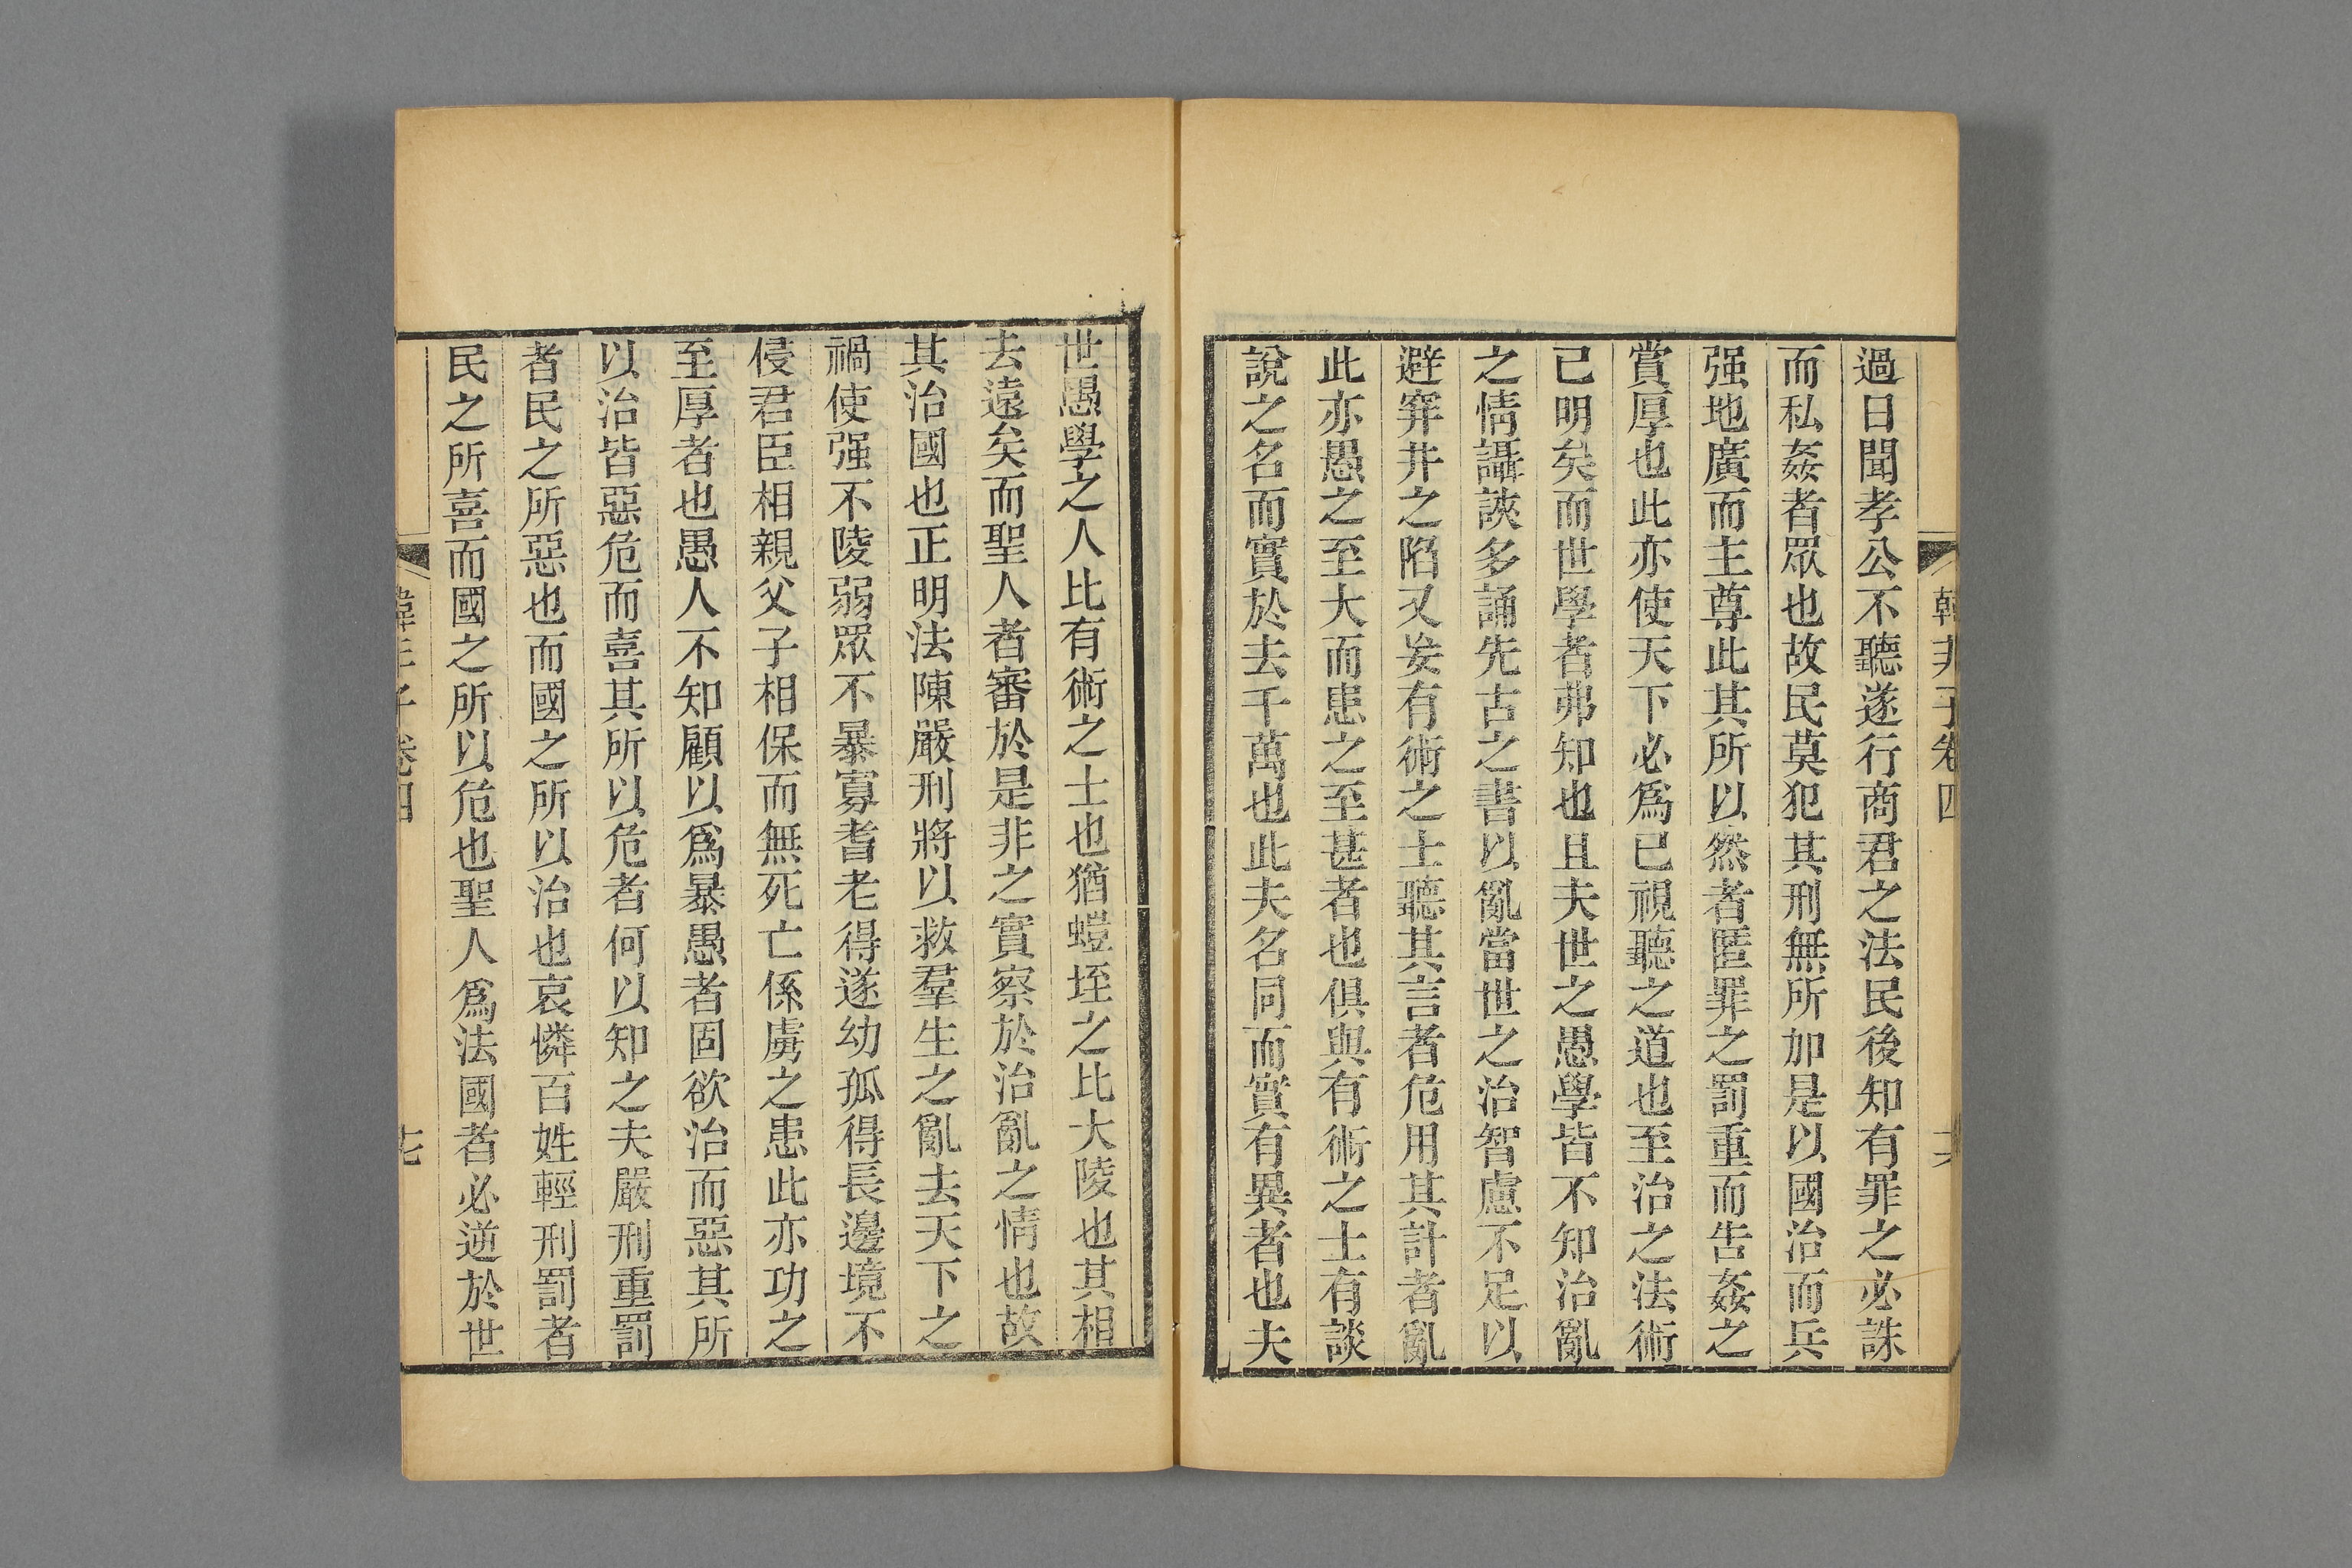 韓非子卷四
過日聞孝公不聽遂行商君之法民後知有罪之必誅
而私姦者眾也故民莫犯其刑無所加是以國治而兵
强地廣而主尊此其所以然者匿罪之罰重而告姦之
賞厚也此亦使天下必爲已視聽之道也至治之法術
已明矣而世學者弗知也且夫世之愚學皆不知治亂
之情讘䛟多誦先古之書以亂當世之治智慮不足以
避穽井之陷又妄有術之士聽其言者危用其計者亂
此亦愚之至大而患之至甚者也俱與有術之士有談
說之名而實於去千萬也此夫名同而實有異者也夫
世愚學之人比有術之士也猶螘垤之比大陵也其相
去遠矣而聖人者審於是非之實察於治亂之情也故
其治國也正明法陳嚴刑將以救羣生之亂去天下之
禍使强不陵弱眾不暴寡耆老得遂幼孤得長邊境不
侵君臣相親父子相保而無死亡係虜之患此亦功之
至厚者也愚人不知顧以爲暴愚者固欲治而惡其所
以治皆惡危而喜其所以危者何以知之夫嚴刑重罰
者民之所惡也而國之所以治也哀憐百姓輕刑罰者
民之所喜而國之所以危也聖人爲法國者必逆於世